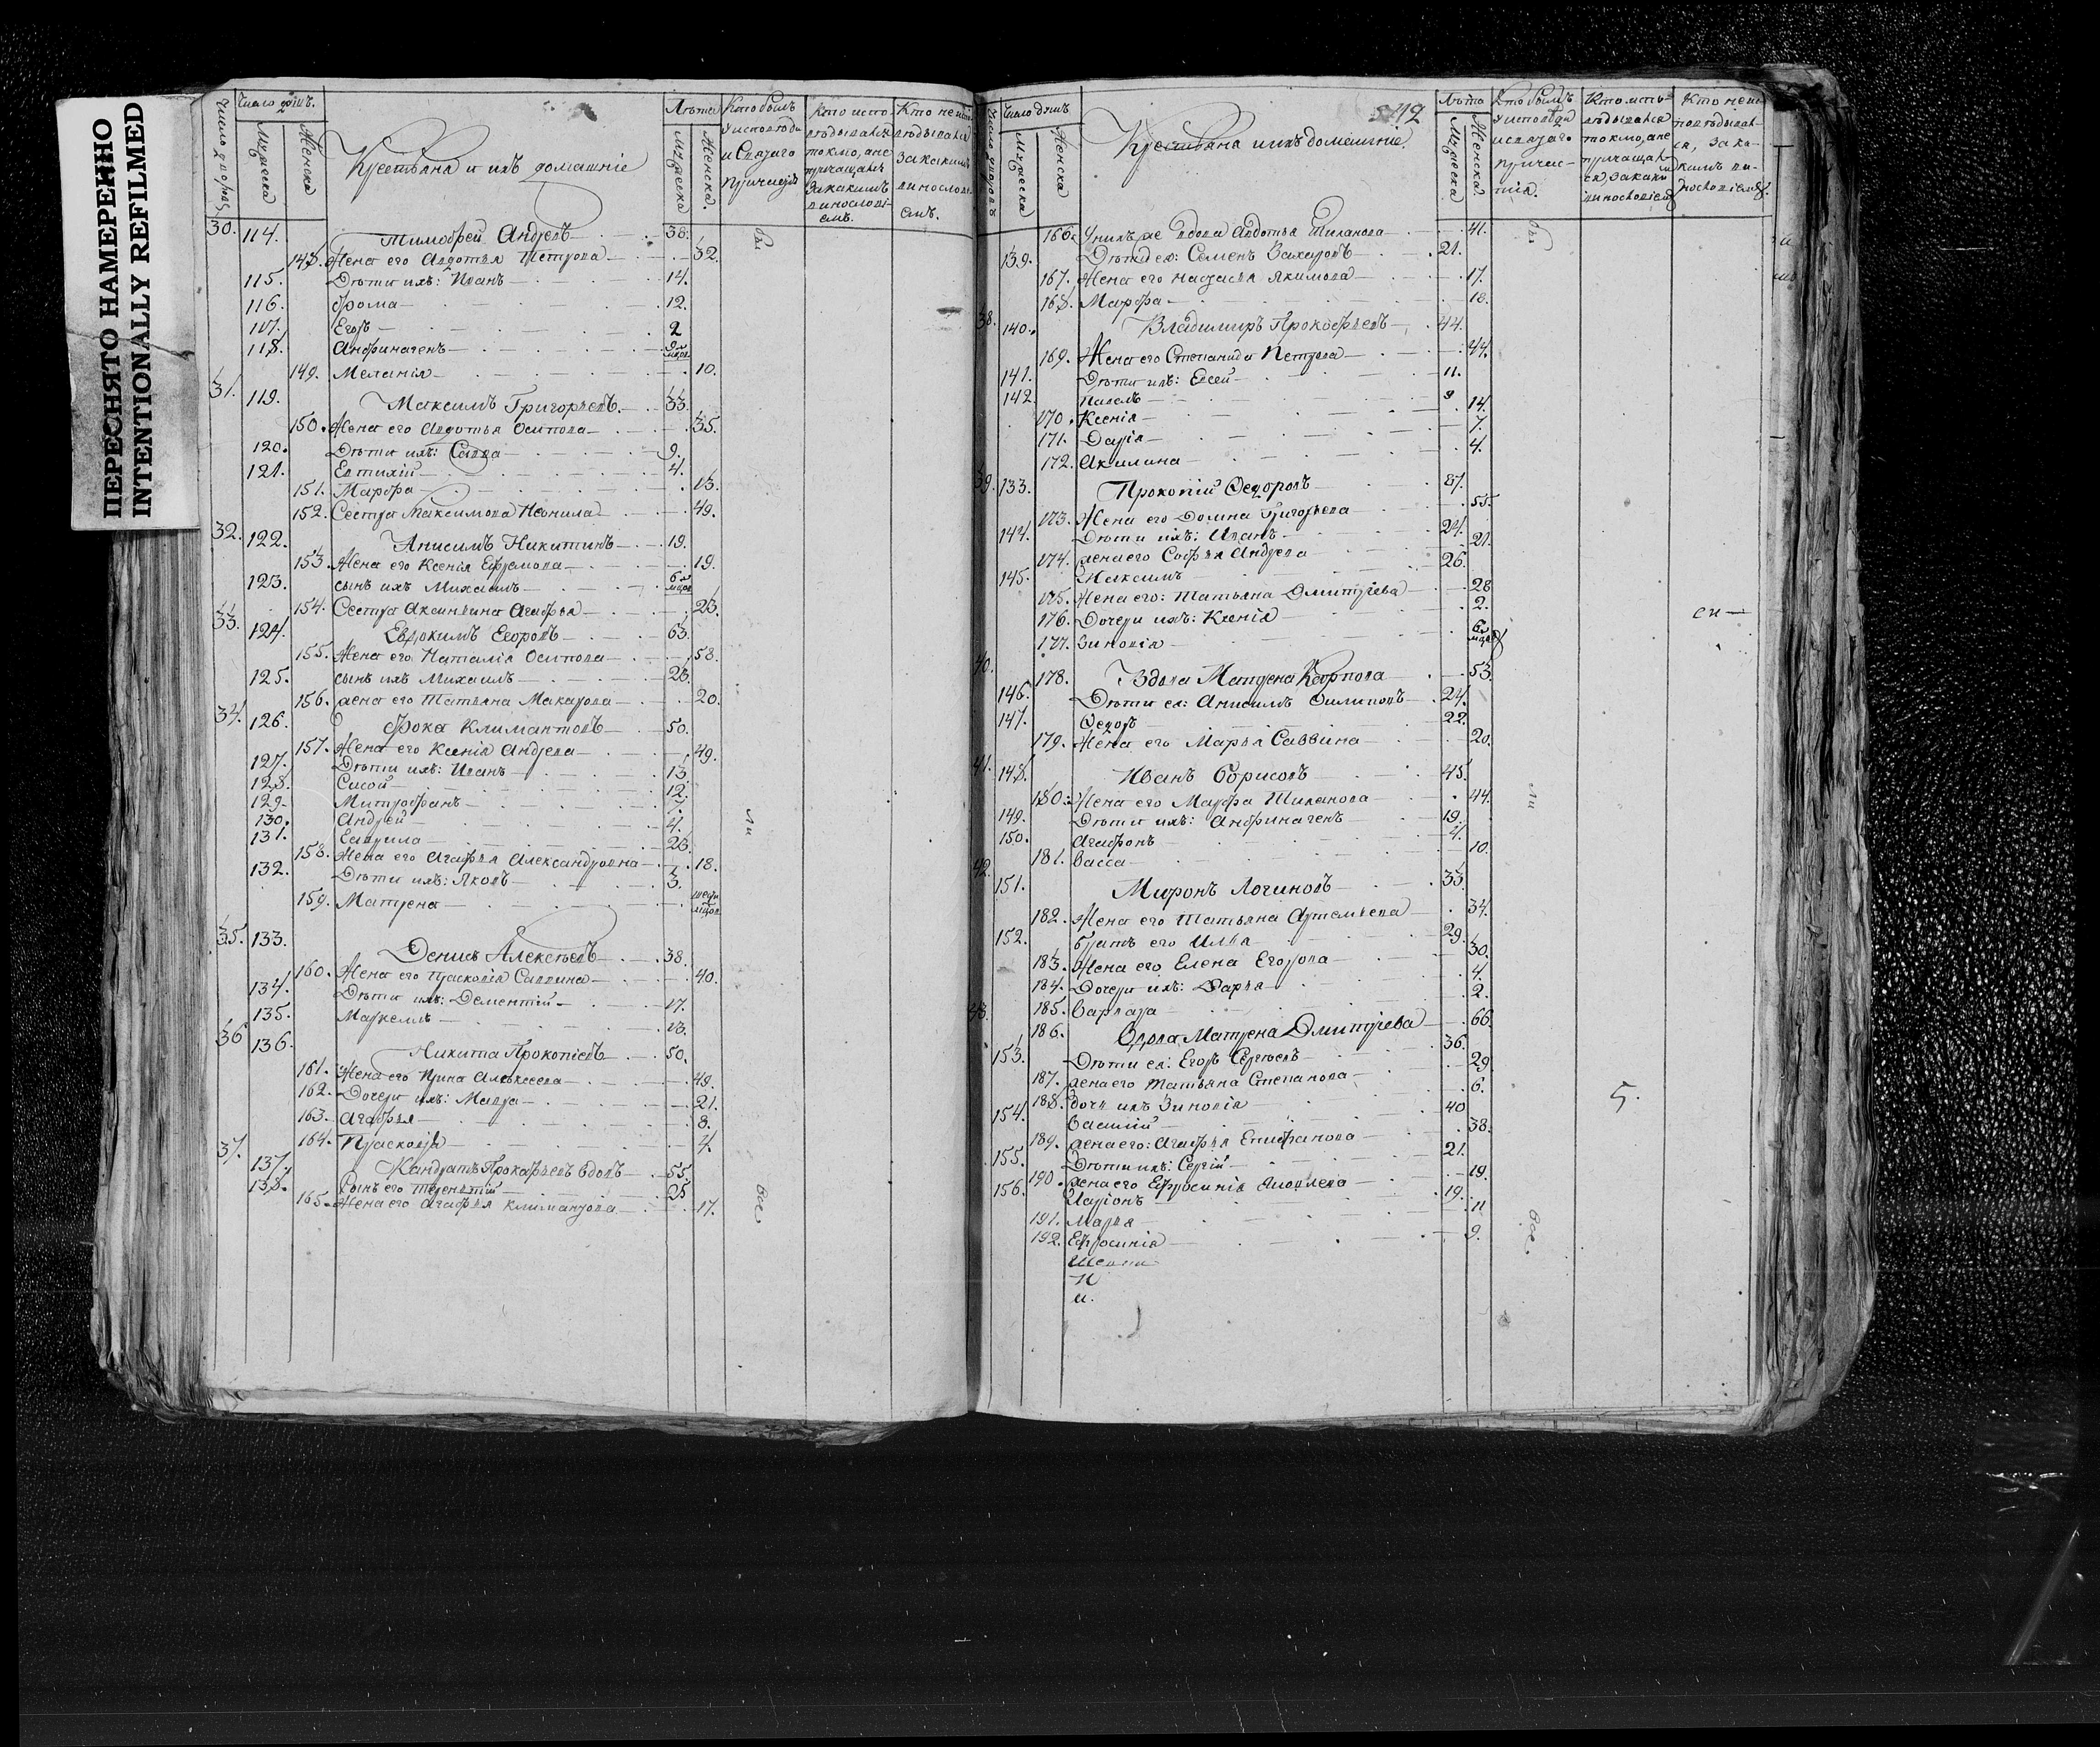 ПЕРЕСНЯТО НАМЕРЕННО
INTENTIONALLY REFILMED
Число дворовъ
Число душъ.
Мужеска
Женска
Крестьяна и ихъ домашніе
Лѣта
Мужеска
Женска.
Кто былъ
у исповѣди
и Святаго
причастія
Кто испо
вѣдывался
токмо, а не
причащался
за какимъ
винословіемъ.
Кто не испо
вѣдывался
за какимъ
винословіемъ.
30. 114. Тимофей Андреевъ 38.
148. Жена его Авдотья Петрова 32.
115. Дѣти ихъ: Иванъ 14.
116. Фома 12.
117. Егоръ 2
118. Анфиногенъ
149. Меланія 10.
31. 119. Максимъ Григорьевъ. 33.
150. Жена его Авдотья Осипова 35.
120. Дѣти ихъ: Савва 9.
121. Евтихій 4.
151. Марфа 13.
152. Сестра Максимова Неонила 49.
32. 122. Анисимъ Никитинъ 19.
153. Жена его Ксенія Ефремова 19.
123. сынъ ихъ Михаилъ 6 м
154. Сестра Аксиньина Агафья 23.
33. 124. Евдокимъ Егоровъ 63.
155. Жена его Наталія Осипова 58.
125. сынъ ихъ Михаилъ 23.
156. жена его Татьяна Макарова 20.
34. 126. Фока Климантовъ 50.
157. Жена его Ксенія Андреева 49.
127. Дѣти ихъ: Иванъ 13.
128. Сисой 12.
129. Митрофанъ 7.
130. Андрей 4.
131. Гаврила 23.
158. Жена его Агафья Александровна 18.
132. Дѣти ихъ: Яковъ 3.
159. Матрена
35. 133. Денисъ Алексѣевъ 38.
160. Жена его Прасковія Саввина 40.
134. Дѣти ихъ: Дементій 17.
135. Маркелъ 13.
36 136. Никита Прокопіевъ 50.
161. Жена его Ирина Алексеева 49.
162. Дочери ихъ: Мавра 21.
163. Агафья 8.
164. Прасковья 4.
37. 137. Кандратъ Прокафьевъ вдовъ 55.
138. Сынъ его Терентій 25
165. Жена его Агафья Климантова 17.
бы
ли
все
542
Число дворовъ
Число душъ
Мужеска
Женска
Крестьяна и ихъ домашніе.
Лѣта
Мужеска
Женска.
Кто былъ
у исповѣди
и святаго
причас-
тія.
Кто испо-
вѣдывался
токмо, а не
причащал-
ся, за каким
винословіемъ
Кто не ис
повѣдывал-
ся, за ка-
кимъ ви-
нословіемъ.
166. У нихъ же вдова Авдотья 41.
139. Дѣти ея: Семенъ Захаровъ 21.
167. Жена его Настасья Якимова 17.
168. Марфа 18.
38. 140. Владимиръ Прокофьевъ 44.
169. Жена его Степанида Петрова 44.
141. Дѣти ихъ: Евсей 11.
142 Павелъ 9
170. Ксенія 14.
171. Дарія 7.
172. Акилина 4.
39. 133. Прокопій Федоровъ 87.
173. Жена его Домна Григорьева 55.
144. Дѣти ихъ: Иванъ 24.
174. жена его Софья Андреева 21.
145. Максимъ 26.
175. Жена его: Татьяна Дмитріева 28
176. Дочери ихъ: Ксенія 2.
177. Зиновія 6 м
40. 178. Вдова Матрена Карпова 53
146. Дѣти ея: Анисимъ Филиповъ 24.
147. Федоръ 22.
179. Жена его Марья Саввина 20.
41. 148. Иванъ Борисовъ 45.
180. Жена его Марфа 44.
149. Дѣти ихъ: Анфиногенъ 19.
150. Агафонъ 4.
181. Васса 10.
42. 151. Миронъ Логиновъ 33
182. Жена его Татьяна Артемьева 34.
152. братъ его Илья 29.
183. Жена его Елена Егорова 30.
184. Дочери ихъ: Дарья 4.
185. Варвара 2.
43. 186. Вдова Матрена Дмитріева 66.
153. Дѣти ея: Егоръ Сергѣевъ 36.
187. жена его Татьяна Степанова 29
188. дочь ихъ Зиновія 6.
154. Василій 40
189. жена его: Агафья Епифанова 38.
155. Дѣти ихъ: Сергій 21.
190. жена его Ефросинія Яковлева 19.
156. Иларіонъ 19.
191. Марья 11
192. Ефросинія 9.
И
и.
бы
ли
все.
5.
си